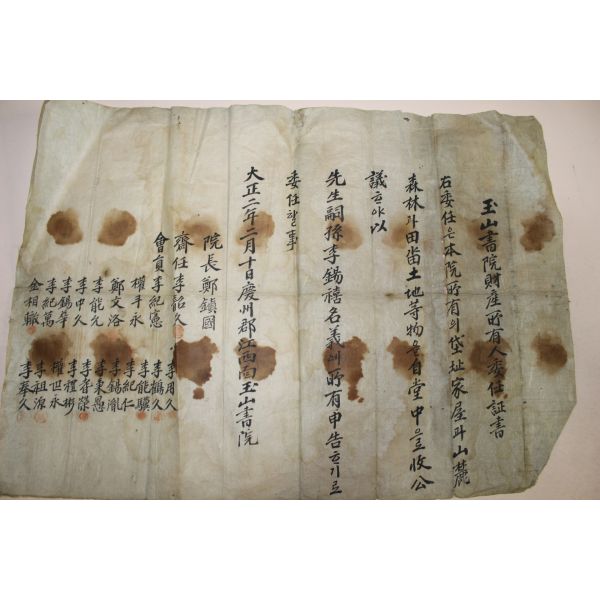 玉山書院財産所有人委任証書
右委任은本院所有의垈址家屋과山麓
森林과田畓土地等物을自堂中으로收公
議하야以
先生嗣孫李錫禧名義此所有申告하기로
委任할事
大正二年二月十日慶州郡江西面玉山書院
院長鄭鎭國
齋任李能久
會員李紀憲
權平永
鄭文洛
李能允
李中久
李錫華
李紀萬
金相轍
李用久
李鶴久
李能驥
李紀仁
李錫胤
李東愚
李
李禮彬
權世永
李祖源
李奉久